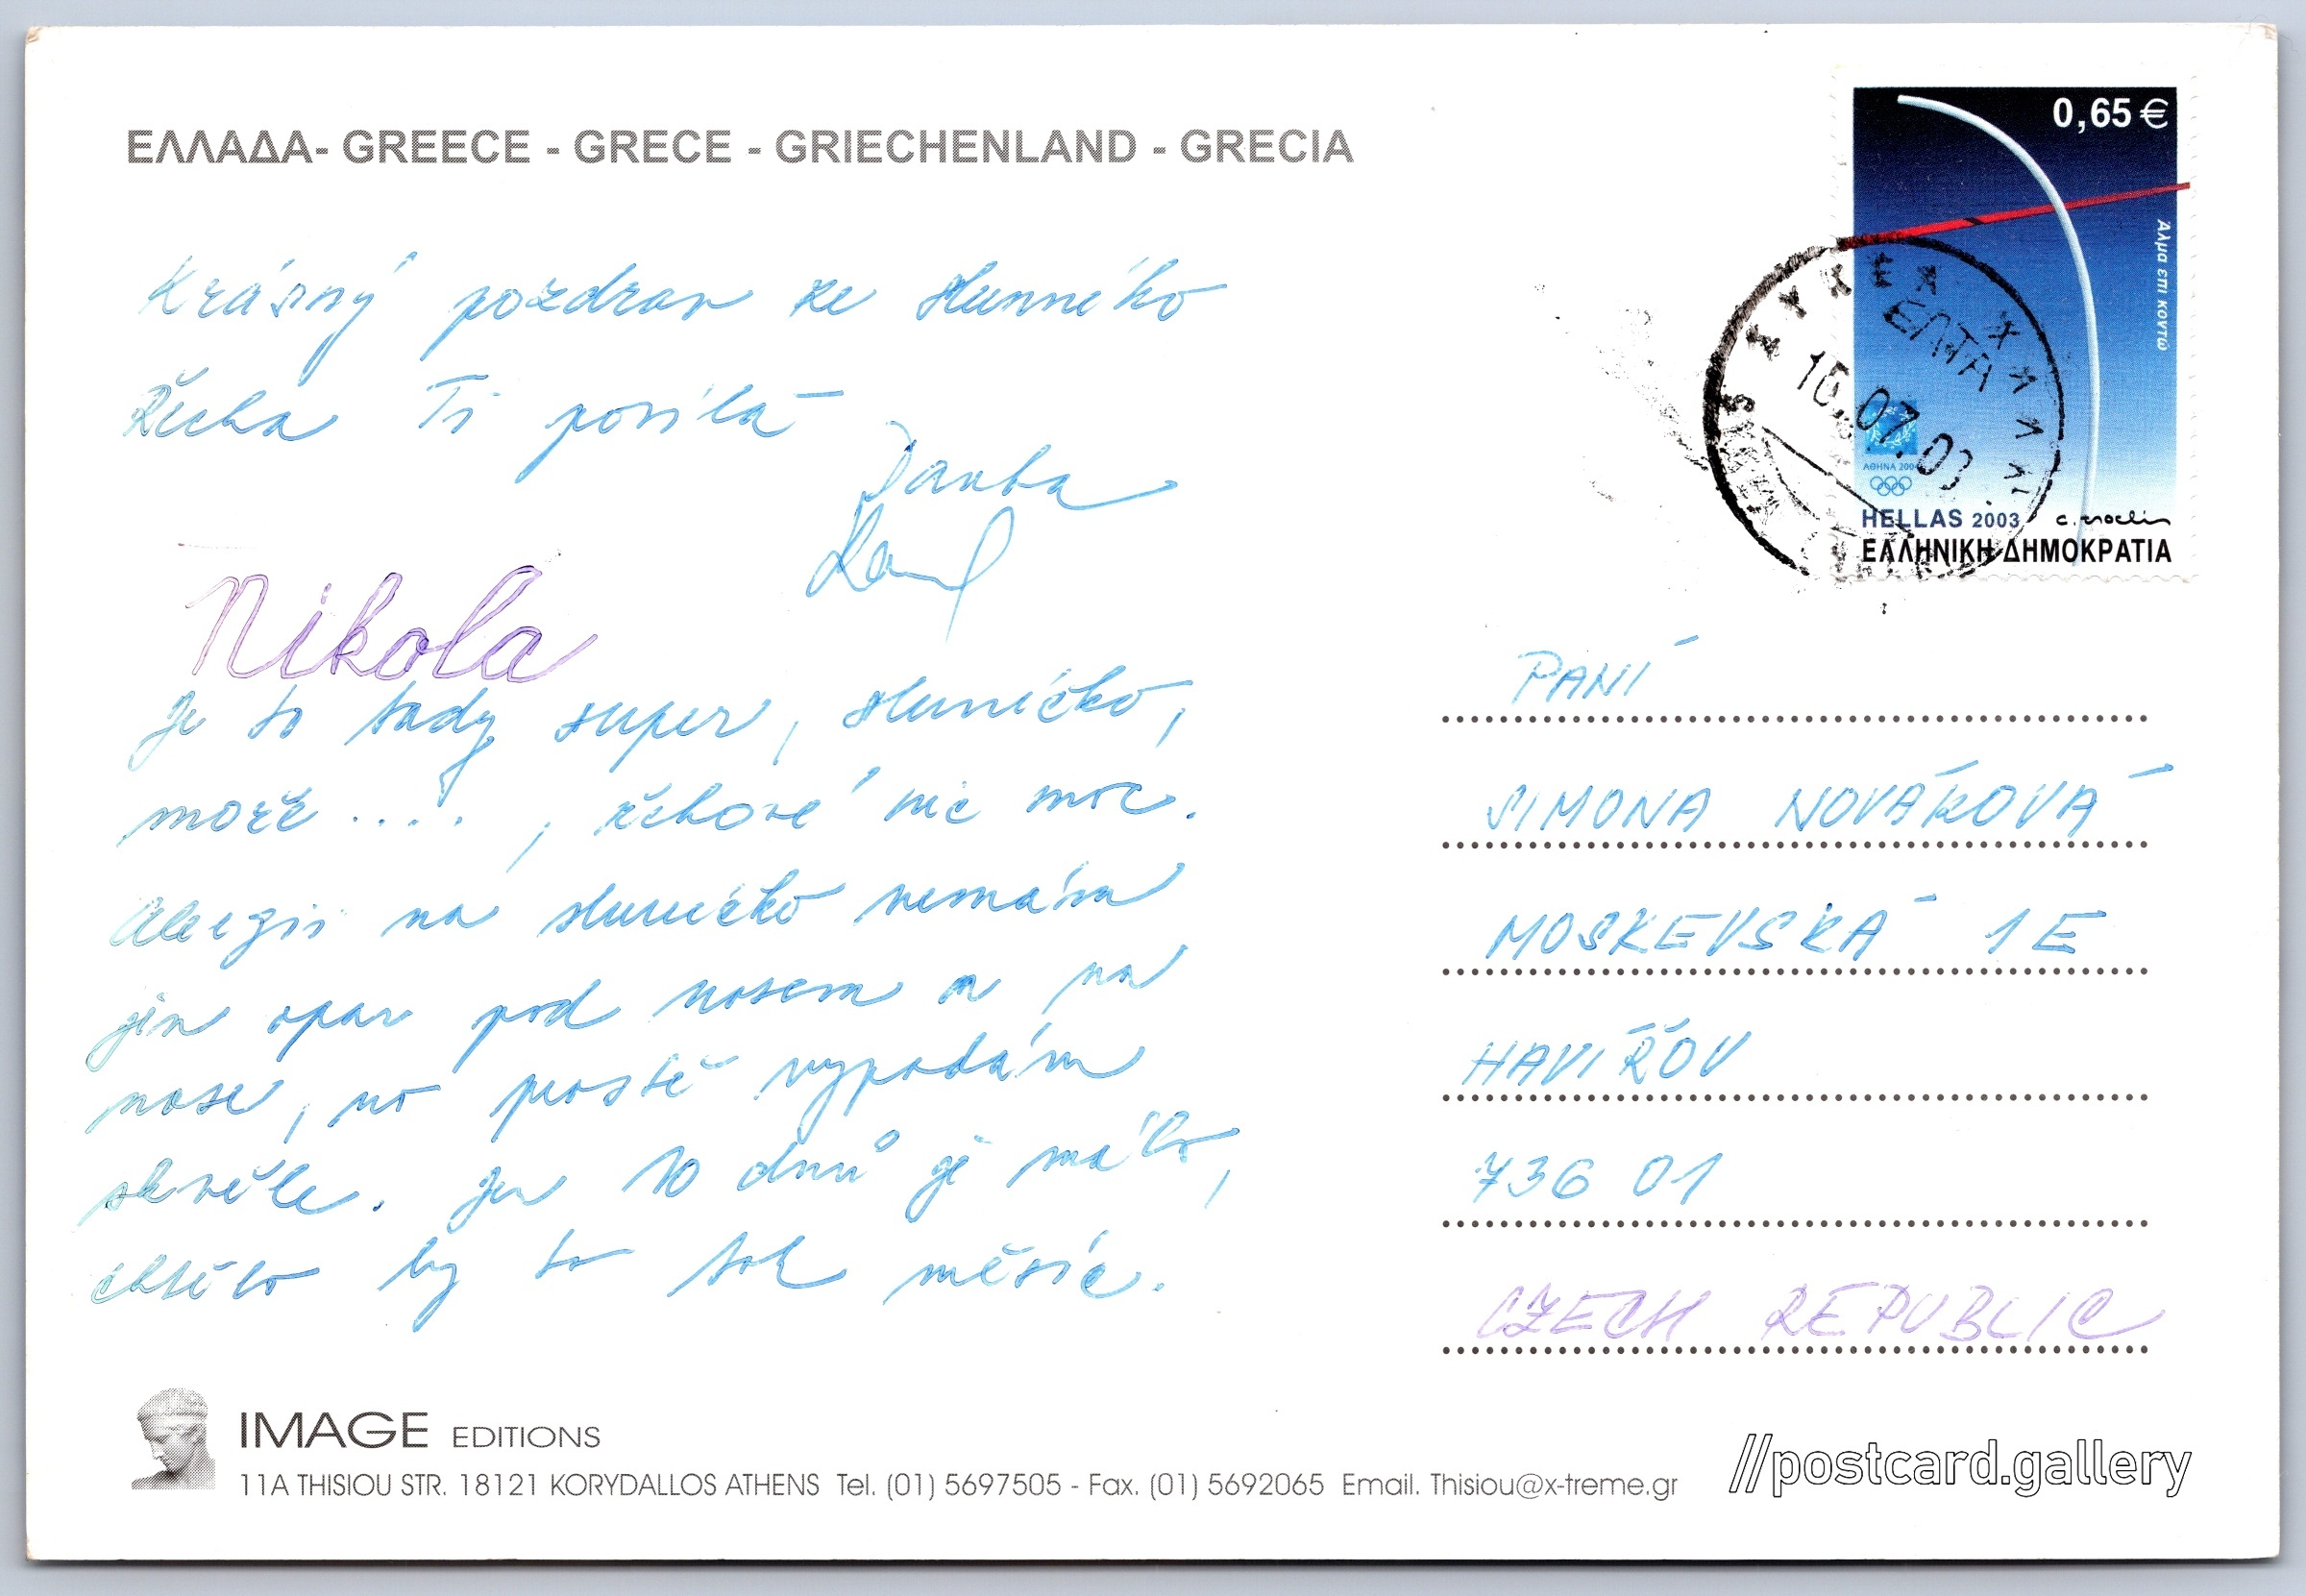 ΕΛΛΑΔΑ- GREECE - GRECE - GRIECHENLAND - GRECIA
0,65 €
Άλμα επί κοντώ
ΕΛΤΑ
ΑΘΗΝΑ 2004
HELLAS 2003
ΕΛΛΗΝΙΚΗ ΔΗΜΟΚΡΑΤΙΑ
Krásný pozdrav ze slunného
Řecka Ti posílá
Danka
Nikola
Je to tady super, sluníčko,
moře ...., řekové nic moc.
Alergii na sluníčko nemám
jen opar pod nosem a na
nose, no prostě vypadám
skvěle. Jen 10 dnů je málo,
chtělo by to tak měsíc.
PANÍ
SIMONA NOVÁKOVÁ
MOSKEVSKÁ 1E
HAVÍŘOV
736 01
CZECH REPUBLIC
IMAGE EDITIONS
11A THISIOU STR. 18121 KORYDALLOS ATHENS Tel. (01) 5697505 - Fax. (01) 5692065 Email. Thisiou@x-treme.gr
//postcard.gallery